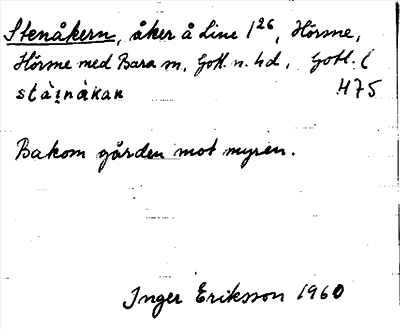 Stenåkern, åker å Line 1²⁶, Hörsne,
Hörsne med Bara sn, Gotl. n. hd, Gotl. l
stàinåkan 475
Bakom gården mot myren.
Inger Eriksson 1960